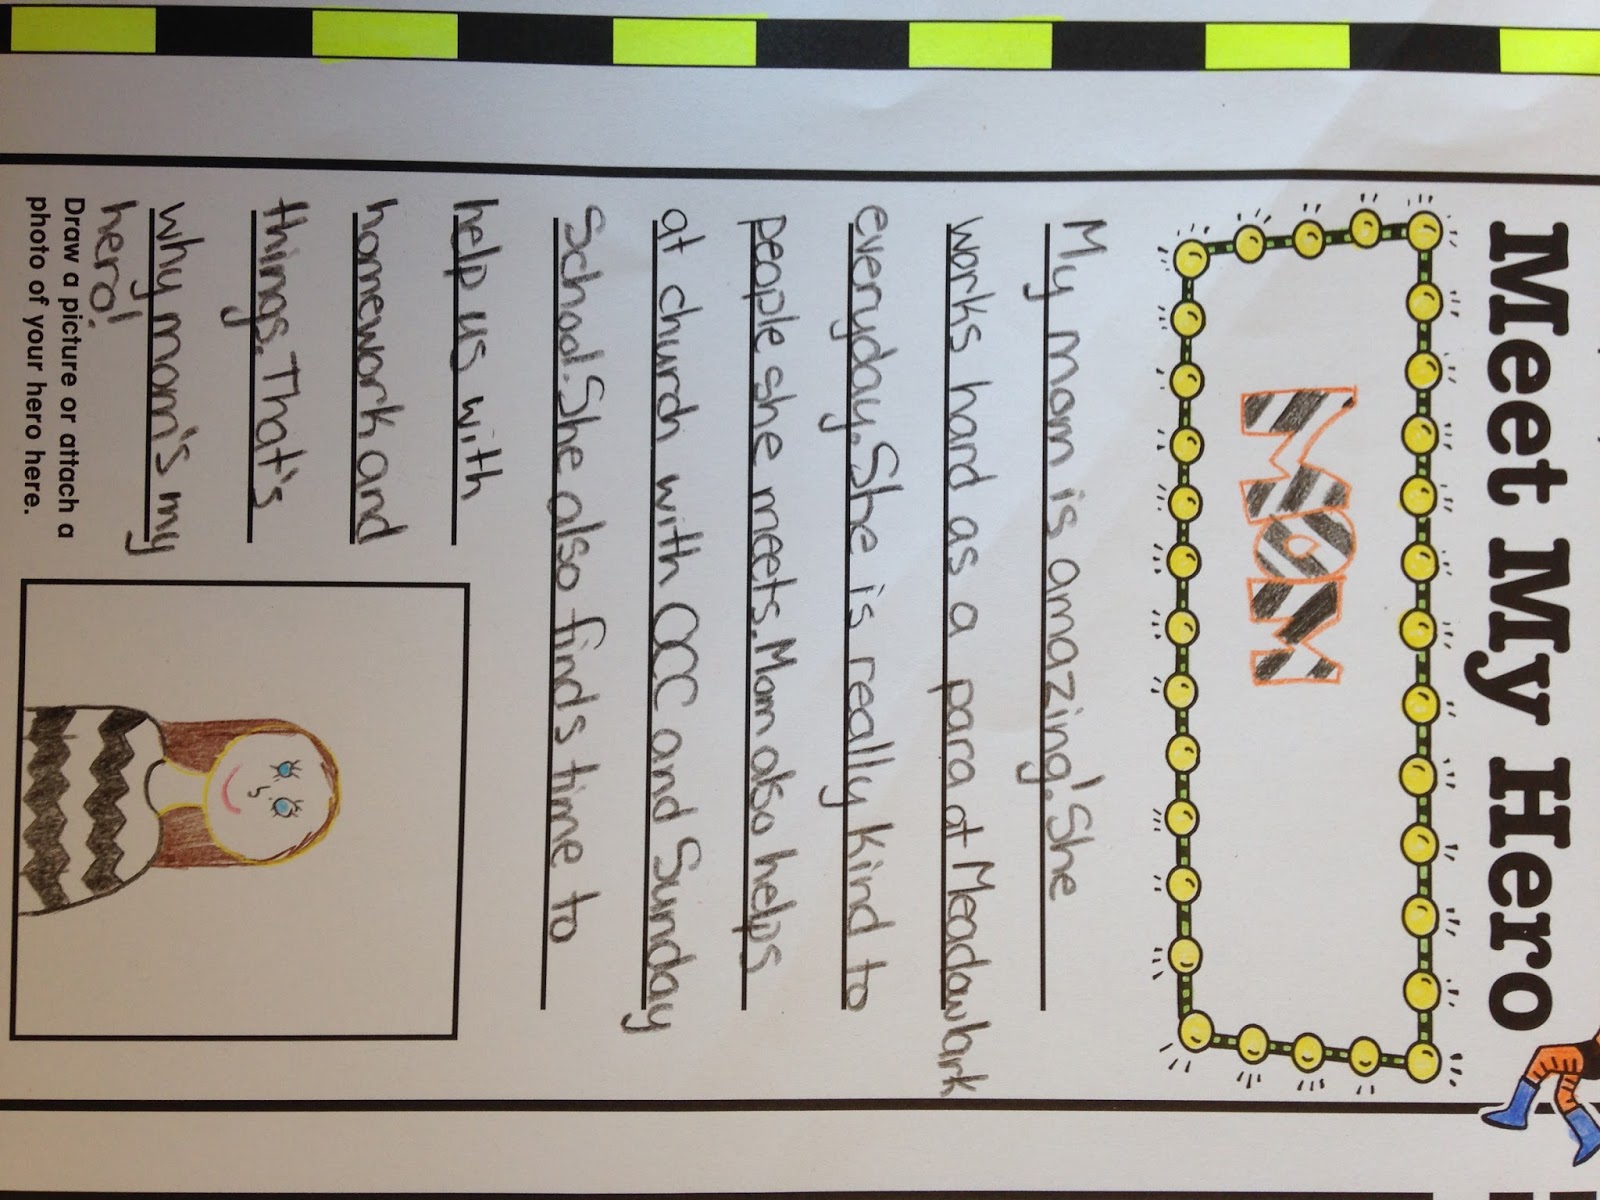 Meet My Hero
MOM
My mom is amazing! She
works hard as a para at Meadowlark
everyday. She is really kind to
people she meets. Mom also helps
at church with OCC and Sunday
School. She also finds time to
help us with
homework and
things. That's
why mom's my
hero!
Draw a picture or attach a
photo of your hero here.